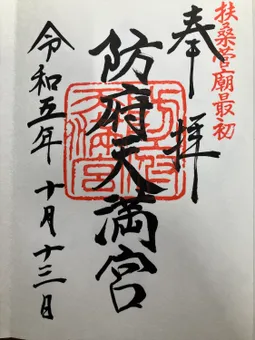 扶桑菅廟最初
奉拝
防府天満宮
令和五年 十月十三日